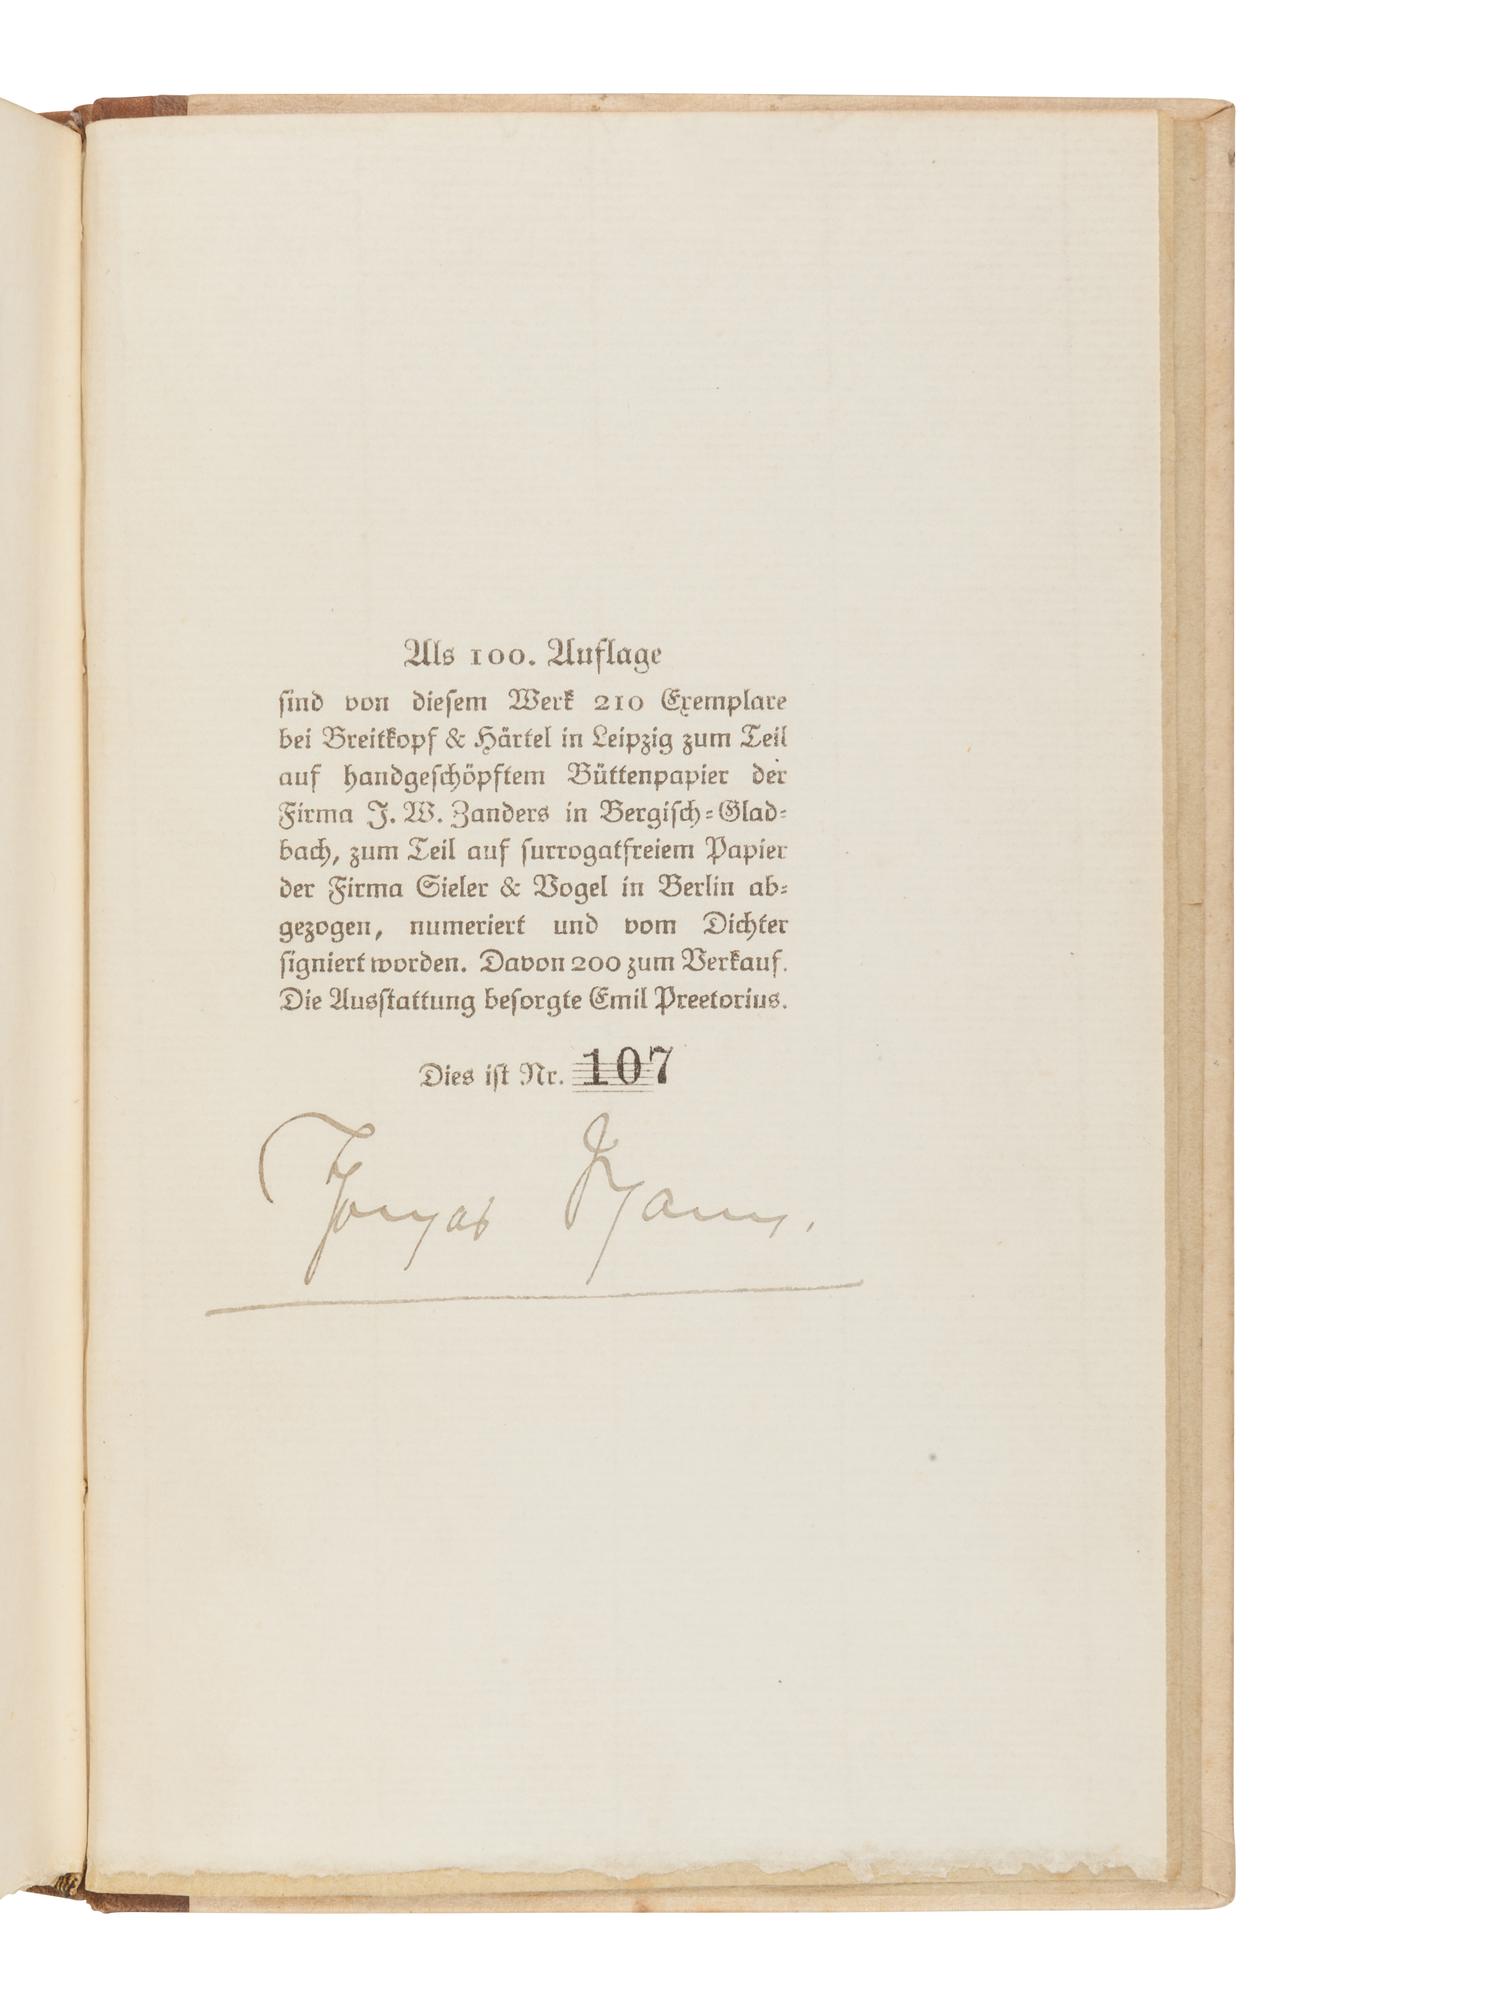 Als 100. Auflage
sind von diesem Werk 210 Exemplare
bei Breitkopf & Härtel in Leipzig zum Teil
auf handgeschöpftem Büttenpapier der
Firma J. W. Zanders in Bergisch-Glad-
bach, zum Teil auf surrogatfreiem Papier
der Firma Sieler & Vogel in Berlin ab-
gezogen, numeriert und vom Dichter
signiert worden. Davon 200 zum Verkauf.
Die Ausstattung besorgte Emil Preetorius.
Dies ist Nr. 107
Thomas Mann.